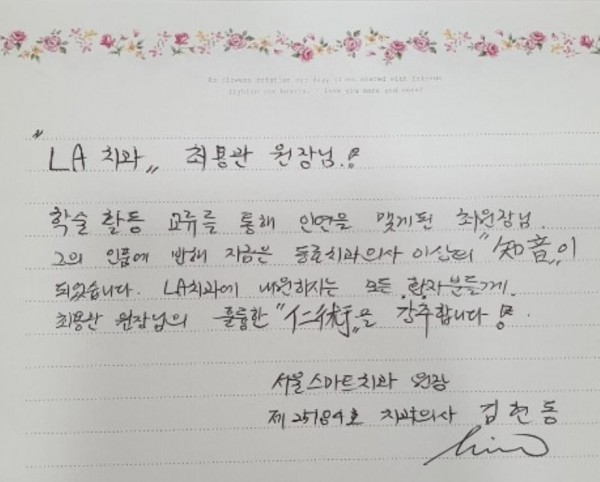 "LA 치과" 최용관 원장님!
학술 활동 교류를 통해 인연을 맺게된 최원장님.
그의 인품에 반해 지금은 동료치과의사 이상의 "知音"이
되었습니다. LA치과에 내원하시는 모든 환자분들께.
최용관 원장님의 훌륭한 "仁術"을 강추합니다!
서울스마트치과 원장
제25184호 치과의사 김헌동